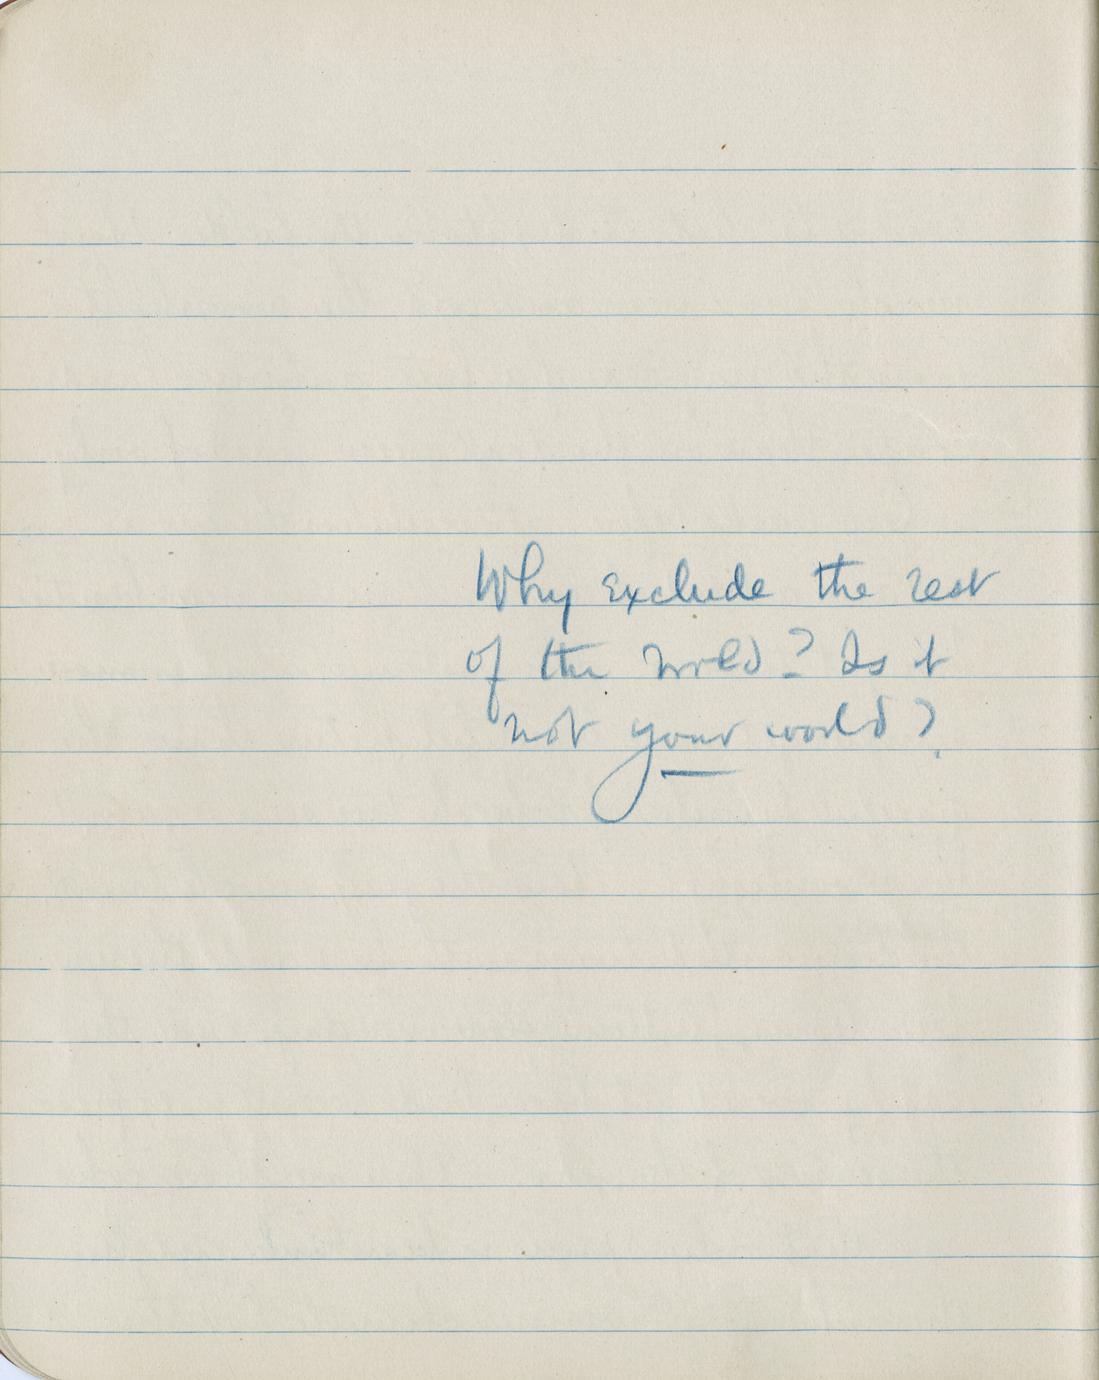 Why exclude the rest
of the world? Is it
not your world?